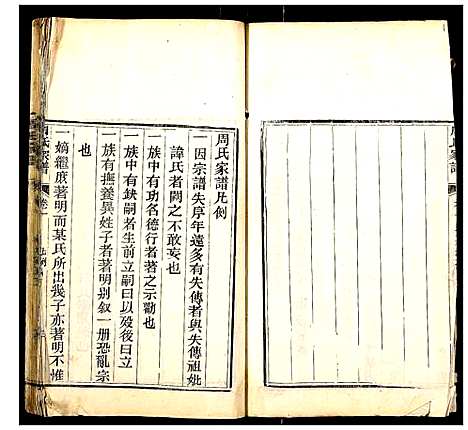 周氏家譜凡例
一因宗譜失序年遠多有失傳者與失傳祖妣
諱氏者闕之不敢妄也
一族中有功名德行者著之示勸也
一族中有缺嗣者生前立嗣曰以歿後曰立
一族有撫養異姓子者著明别叙一册恐亂宗
也
一嫡繼庶著明而某氏所出幾子亦著明不惟
周氏家譜
卷一